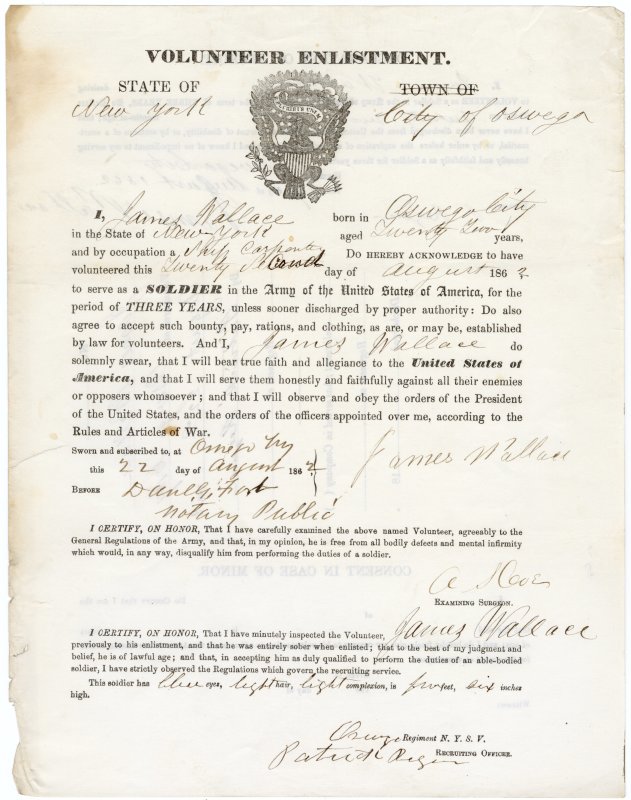 VOLUNTEER ENLISTMENT.
STATE OF TOWN OF
New York City of Oswego
I, James Wallace born in Oswego City
in the State of New-York aged Twenty Two years,
and by occupation a Ship Carpenter Do HEREBY ACKNOWLEDGE to have
volunteered this Twenty Second day of August 1862
to serve as a SOLDIER in the Army of the United States of America, for the
period of THREE YEARS, unless sooner discharged by proper authority: Do also
agree to accept such bounty, pay, rations, and clothing, as are, or may be, established
by law for volunteers. And I, James Wallace do
solemnly swear, that I will bear true faith and allegiance to the United States of
America, and that I will serve them honestly and faithfully against all their enemies
or opposers whomsoever; and that I will observe and obey the orders of the President
of the United States, and the orders of the officers appointed over me, according to the
Rules and Articles of War.
Sworn and subscribed to, at Oswego
this 22 day of August 1862
James Wallace
BEFORE
Notary Public
I CERTIFY, ON HONOR, That I have carefully examined the above named Volunteer, agreeably to the
General Regulations of the Army, and that, in my opinion, he is free from all bodily defects and mental infirmity
which would, in any way, disqualify him from performing the duties of a soldier.
A
EXAMINING SURGEON.
I CERTIFY, ON HONOR, That I have minutely inspected the Volunteer, James Wallace
previously to his enlistment, and that he was entirely sober when enlisted; that to the best of my judgment and
belief, he is of lawful age; and that, in accepting him as duly qualified to perform the duties of an able-bodied
soldier, I have strictly observed the Regulations which govern the recruiting service.
This soldier has blue eyes, light hair, light complexion, is five feet, six inches
high.
Oswego Regiment N. Y. S. V.
Patrick Regan RECRUITING OFFICER.